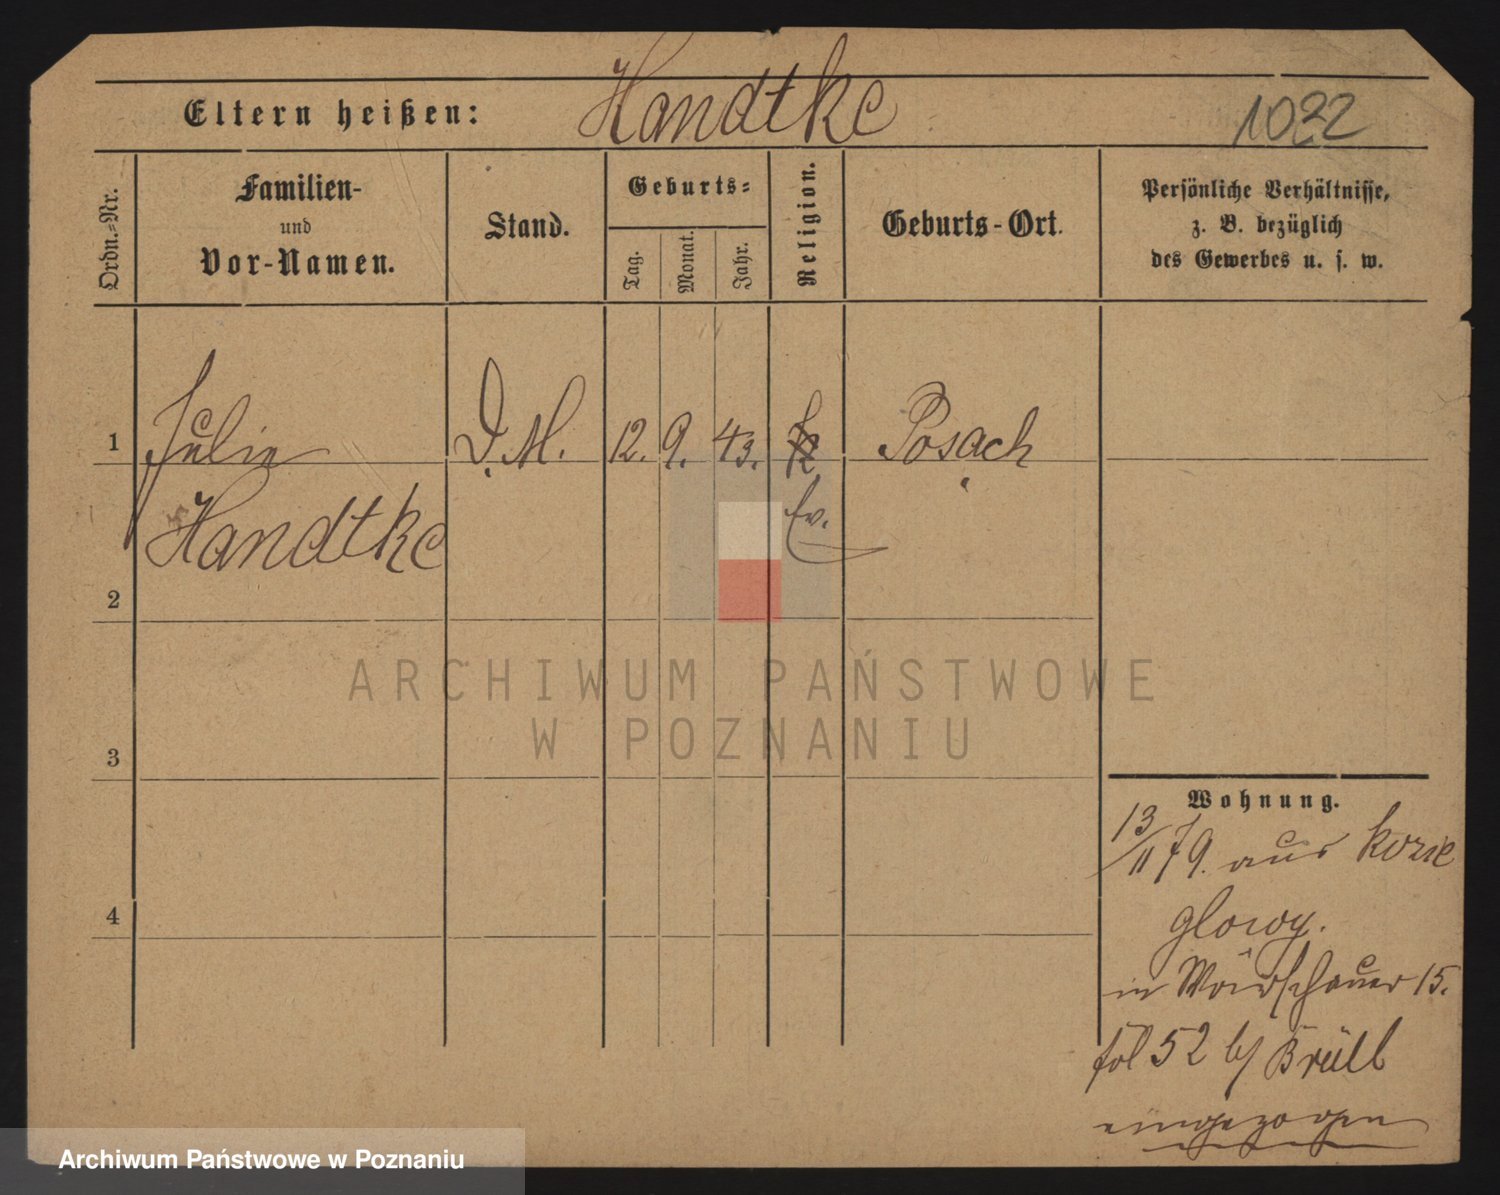 Eltern heißen: Handtke 1022
Ordn.=Nr.
Familien-
und
Vor-Namen.
Stand.
Geburts=
Tag.
Monat.
Jahr.
Religion.
Geburts-Ort.
Persönliche Verhältnisse,
z. B. bezüglich
des Gewerbes u. s. w.
1 Julie D. M. 12. 9. 43. Posach
Handtke Ev.
2
3
4
Wohnung.
13/11 79. aus Kozie
glowy.
in Warschauer 15.
fol 52 b/ Brüll
eingezogen
ARCHIWUM PAŃSTWOWE
W POZNANIU
Archiwum Państwowe w Poznaniu